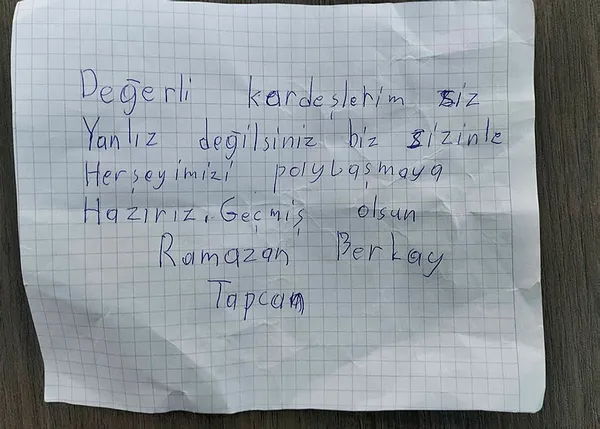 Değerli kardeşlerim siz
Yanlız değilsiniz biz sizinle
Herşeyimizi polybaşmaya
Hazırız. Geçmiş olsun
Ramazan Berkay
Tapcan